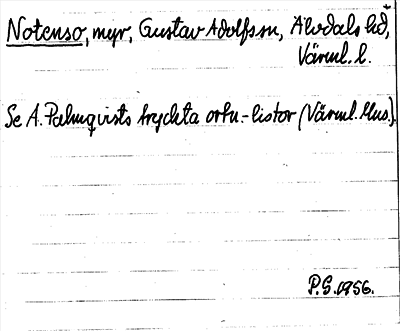 Notenso, myr, Gustav Adolfs sn, Älvdals hd,
Värml. l.
Se A. Palmqvists tryckta ortn.-listor (Värml. Mus.).
P.G. 1956.